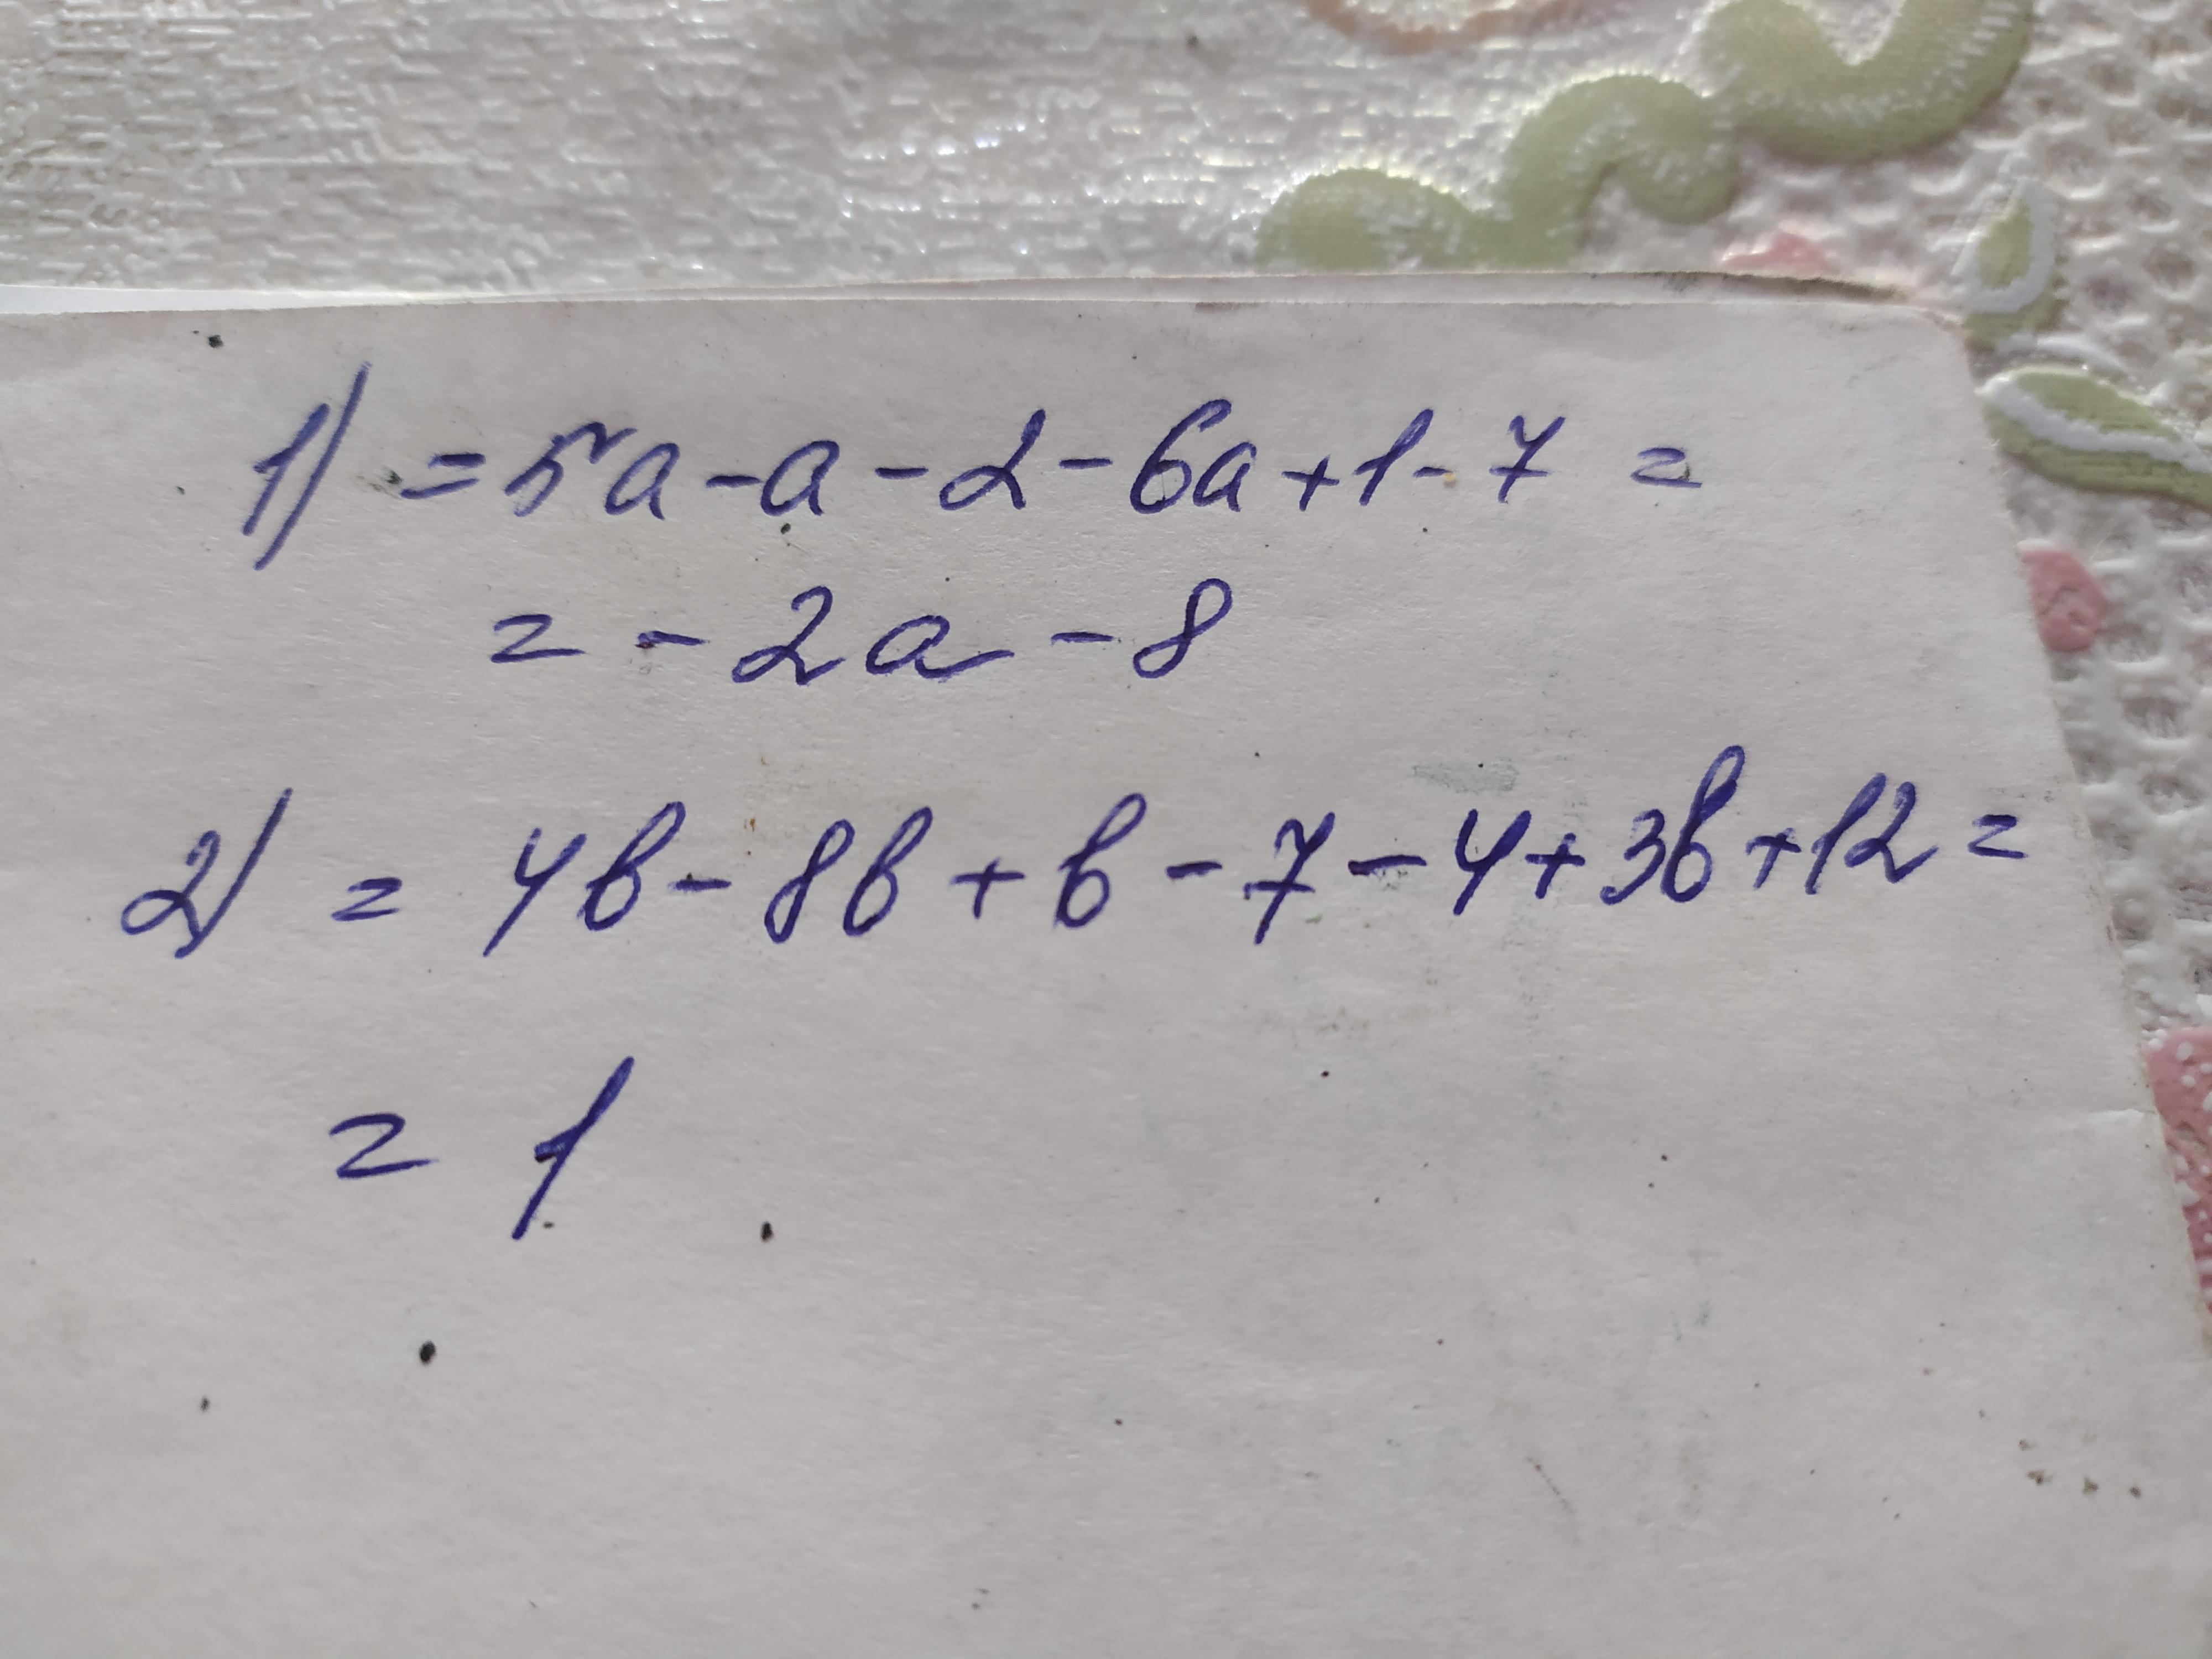 1) = 5a - a - 2 - 6a + 1 - 7 =
= - 2a - 8
2) = 4b - 8b + b - 7 - 4 + 3b + 12 =
= 1